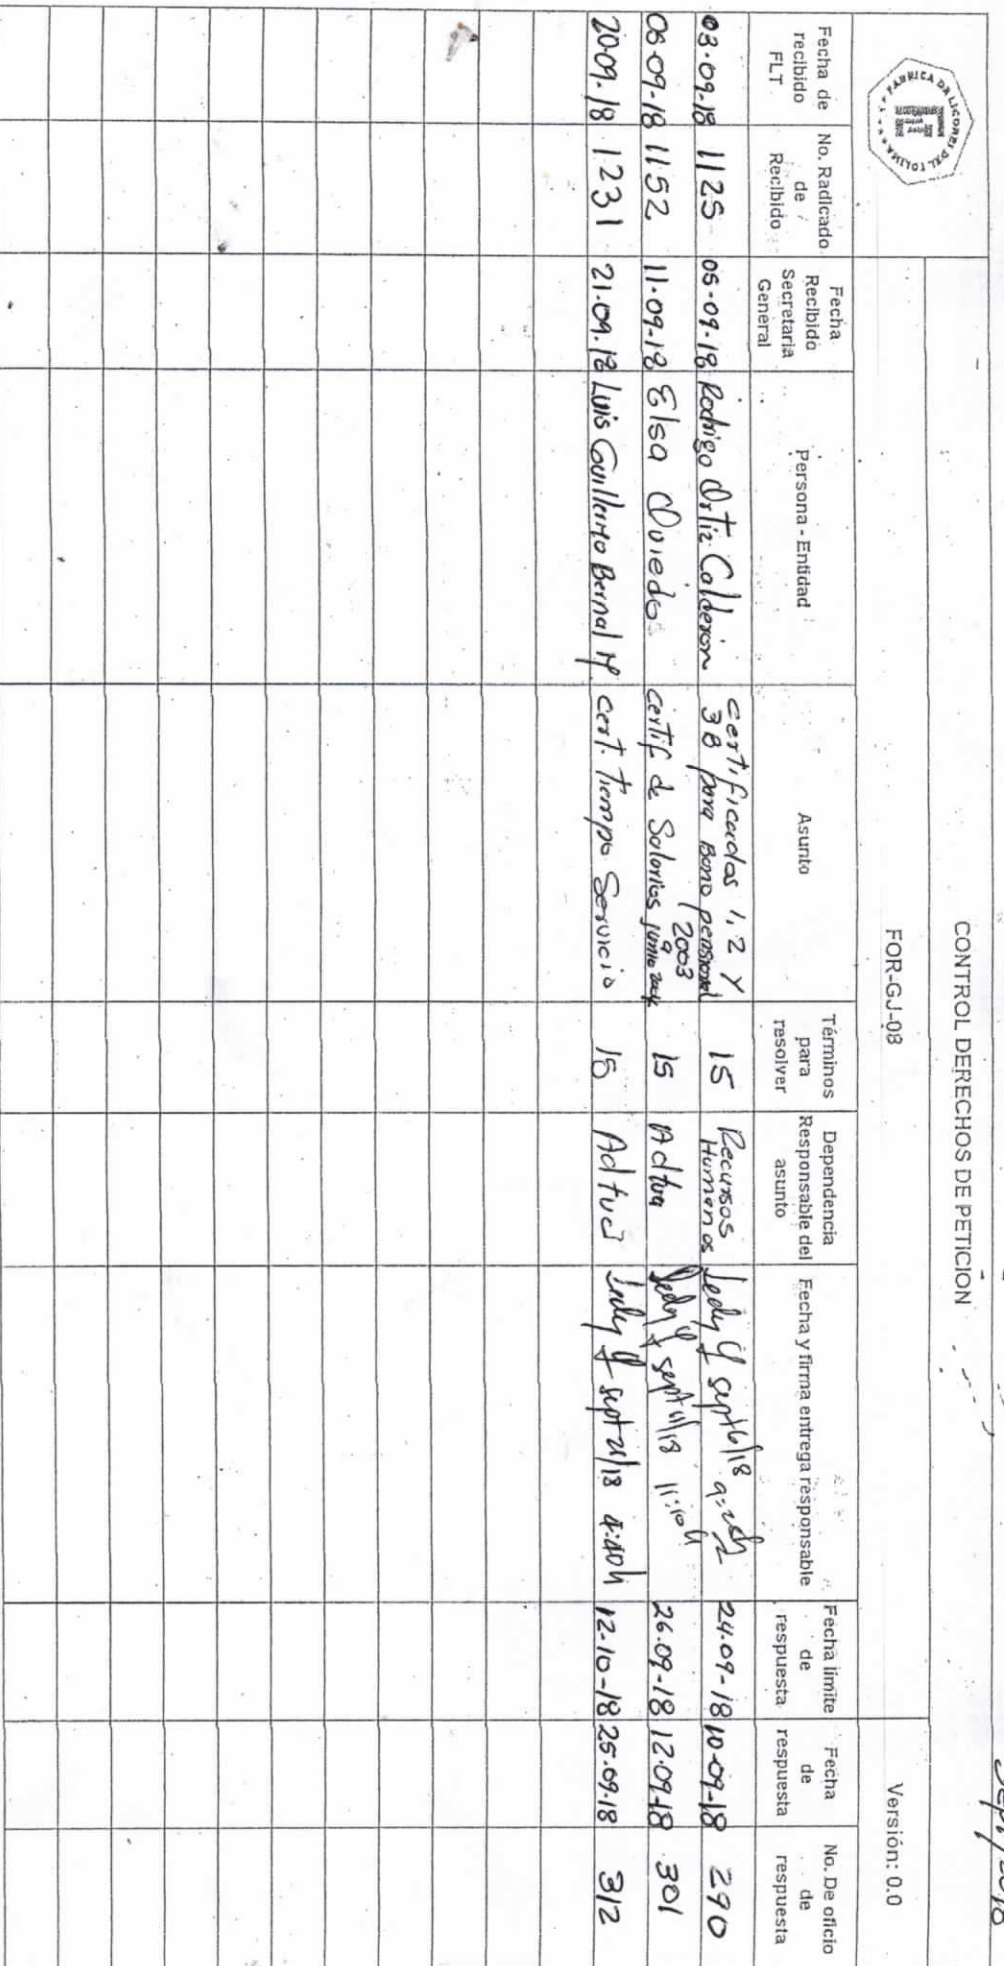 Sept/2018
CONTROL DERECHOS DE PETICION
FABRICA DE LICORES DEL TOLIMA
FOR-GJ-08
Versión: 0.0
Fecha de recibido FLT
No. Radicado de Recibido
Fecha Recibido Secretaria General
Persona - Entidad
Asunto
Términos para resolver
Dependencia Responsable del asunto
Fecha y firma entrega responsable
Fecha limite de respuesta
Fecha de respuesta
No. De oficio de respuesta
03-09-18 1125 05-09-18 Rodrigo Ortiz Calderón Certificados 1, 2 Y 3B para Bono pensional 15 Recursos Humanos sept 6/18 24-09-18 10-09-18 290
06-09-18 1152 11-09-18 Elsa Oviedo Certif de Salarios junio 2003 a 15 Adtva sept 11/18 11:10h 26-09-18 12-09-18 301
20-09-18 1231 21-09-18 Luis Guillermo Bernal M Cert. Tiempo Servicio 15 Adtva sept 21/18 4:40h 12-10-18 25-09-18 312